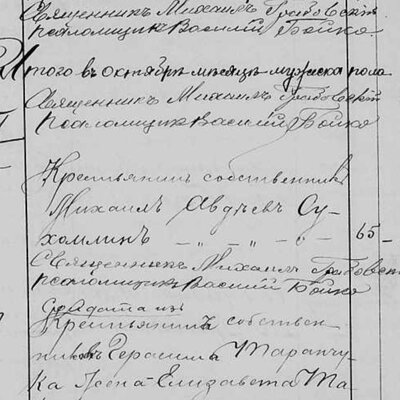 Священникъ Михаилъ Грабовскій
псаломщикъ Василій Бойко
Итого въ октябрѣ мѣсяцѣ мужска пола
Священникъ Михаилъ Грабовскій
псаломщикъ Василій Бойко
Крестьянинъ собственникъ
Михаилъ Авдѣевъ Су-
хомлинъ — „ — „ — „ — 65 —
Священникъ Михаилъ Грабовскій
псаломщикъ Василій Бойко
Солдата изъ
Крестьянинъ собствен-
никовъ Герасима Таранчу-
ка жена Елизавета Та